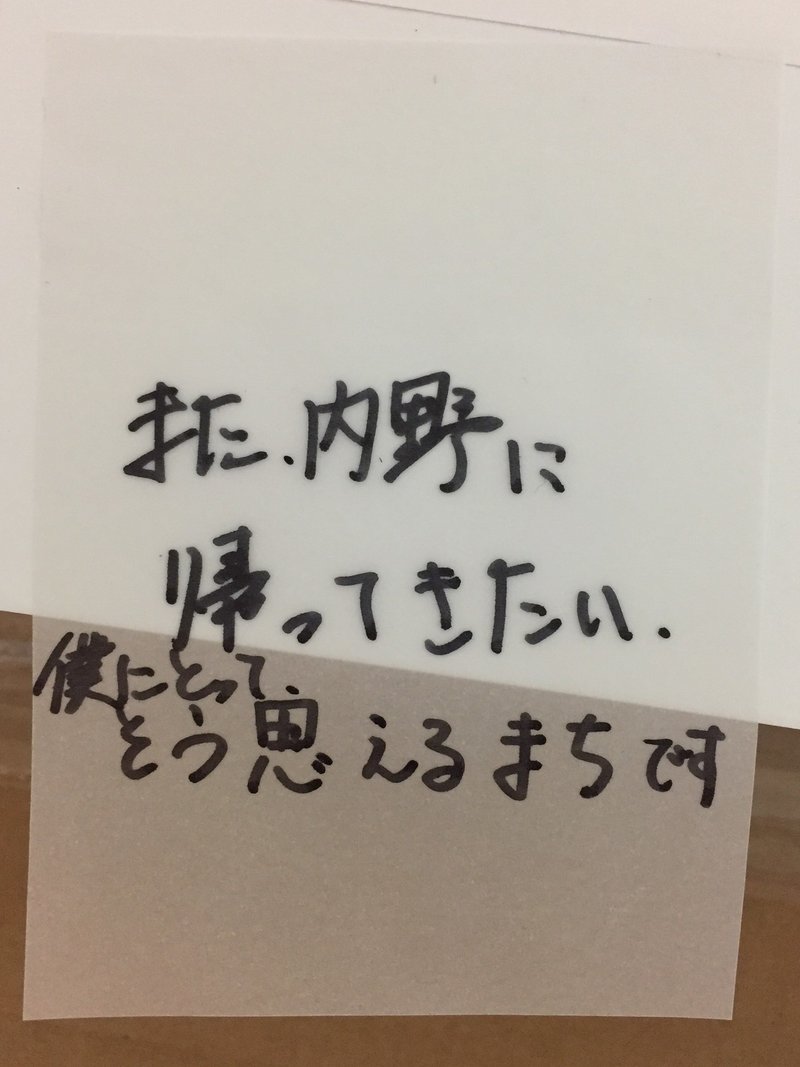 また、内野に
帰ってきたい.
僕にとって、
そう思えるまちです